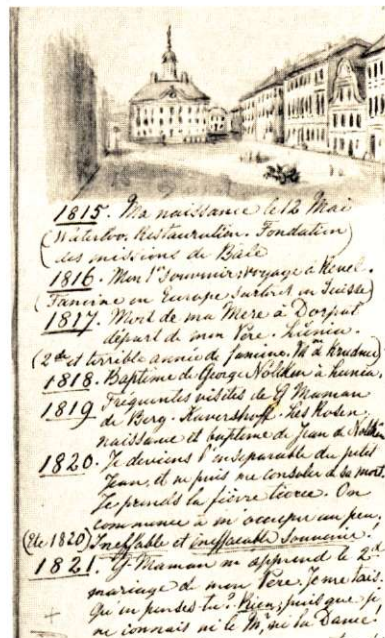 1815. Ma naissance le 12 Mai
(Waterloo. Restauration. Fondation
des missions de Bâle)
1816. Mon 1r Souvenir: voyage à Revel.
(Famine en Europe surtout en Suisse)
1817. Mort de ma Mère à Dorpat
départ de mon Père. Lunia.
(2de et terrible année de famine. Md m Krudner)
1818. Baptême de George Nolcken à Lunia.
1819 Fréquentes visites de Gd Maman
de Berg. Kavershoff. Les Rosen.
naissance et baptême de Jean de Nolcken
1820. Je deviens l'inséparable du petit
Jean, et ne puis me consoler de sa mort.
Je prends la fièvre tierce. On
commence à m'occuper un peu.
(Eté 1820) Ineffable et ineffaçable Souvenir!
1821. Gd Maman m'apprend le 2d
mariage de mon Père. Je me tais.
Qu'en penses tu? Rien, puisque je
ne connais ni le Mr, ni la Dame.